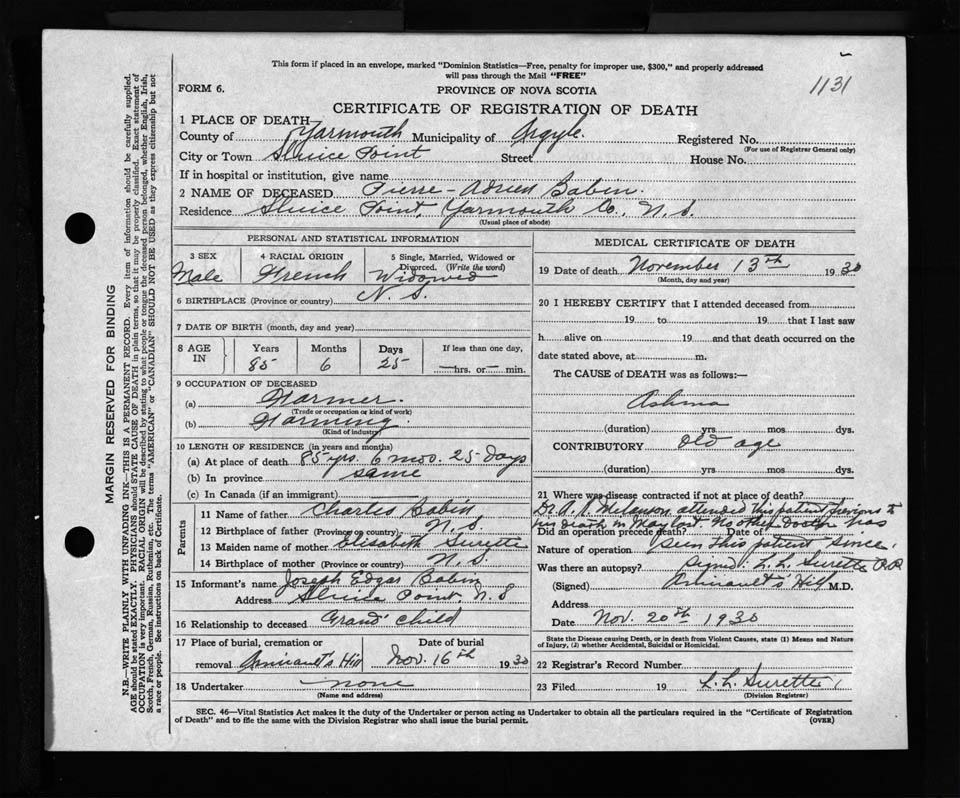 This form if placed in an envelope, marked "Dominion Statistics—Free, penalty for improper use, $300," and properly addressed
will pass through the Mail "FREE"
1131
FORM 6.
PROVINCE OF NOVA SCOTIA
CERTIFICATE OF REGISTRATION OF DEATH
1 PLACE OF DEATH
County of Yarmouth Municipality of Argyle. Registered No.
(For use of Registrar General only)
City or Town Sluice Point Street House No.
If in hospital or institution, give name
2 NAME OF DECEASED Pierre-Adrien Babin.
Residence Sluice Point, Yarmouth Co., N.S.
(Usual place of abode)
PERSONAL AND STATISTICAL INFORMATION
3 SEX 4 RACIAL ORIGIN 5 Single, Married, Widowed or
Divorced. (Write the word)
Male French Widowed
6 BIRTHPLACE (Province or country) N.S.
7 DATE OF BIRTH (month, day and year)
8 AGE IN Years Months Days If less than one day,
85 6 25 —hrs. or— min.
9 OCCUPATION OF DECEASED
(a) Farmer.
(Trade or occupation or kind of work)
(b) Farming.
(Kind of industry)
10 LENGTH OF RESIDENCE (in years and months)
(a) At place of death 85 yrs. 6 mos. 25 days
(b) In province same
(c) In Canada (if an immigrant)
Parents
11 Name of father Charles Babin
12 Birthplace of father (Province or country) N.S.
13 Maiden name of mother Elisabeth Surette
14 Birthplace of mother (Province or country) N.S.
15 Informant's name Joseph Edgar Babin
Address Sluice Point, N.S
16 Relationship to deceased Grand child
17 Place of burial, cremation or Date of burial
removal Amirault's Hill Nov. 16th 1930
18 Undertaker none
(Name and address)
MEDICAL CERTIFICATE OF DEATH
19 Date of death November 13th 1930
(Month, day and year)
20 I HEREBY CERTIFY that I attended deceased from
19 to 19 that I last saw
h alive on 19 and that death occurred on the
date stated above, at m.
The CAUSE of DEATH was as follows:—
Ashma
(duration) yrs. mos dys.
CONTRIBUTORY old age
(duration) yrs. mos. dys.
21 Where was disease contracted if not at place of death?
Dr. A. R. Melanson attended this patient previous to
his death in May last. No other doctor has
Did an operation precede death? Date of
seen this patient since.
Nature of operation
Was there an autopsy? Signed: L. L. Surette P.P.
(Signed) Amirault's Hill M.D.
Address
Date Nov. 20th 1930
State the Disease causing Death, or in death from Violent Causes, state (1) Means and Nature
of Injury, (2) whether Accidental, Suicidal or Homicidal.
22 Registrar's Record Number
23 Filed 19 L. L. Surette
(Division Registrar)
SEC. 46—Vital Statistics Act makes it the duty of the Undertaker or person acting as Undertaker to obtain all the particulars required in the "Certificate of Registration
of Death" and to file the same with the Division Registrar who shall issue the burial permit. (OVER)
MARGIN RESERVED FOR BINDING
N.B.—WRITE PLAINLY WITH UNFADING INK—THIS IS A PERMANENT RECORD. Every item of information should be carefully supplied.
AGE should be stated EXACTLY. PHYSICIANS should STATE CAUSE OF DEATH in plain terms, so that it may be properly classified. Exact statement of
OCCUPATION is very important. RACIAL ORIGIN will be described by stating to what people or tongue the deceased person belonged, whether English, Irish,
Scotch, French, German, Russian, Ruthenian, etc. The terms "AMERICAN" or "CANADIAN" SHOULD NOT BE USED as they express citizenship but not
a race or people. See instructions on back of Certificate.